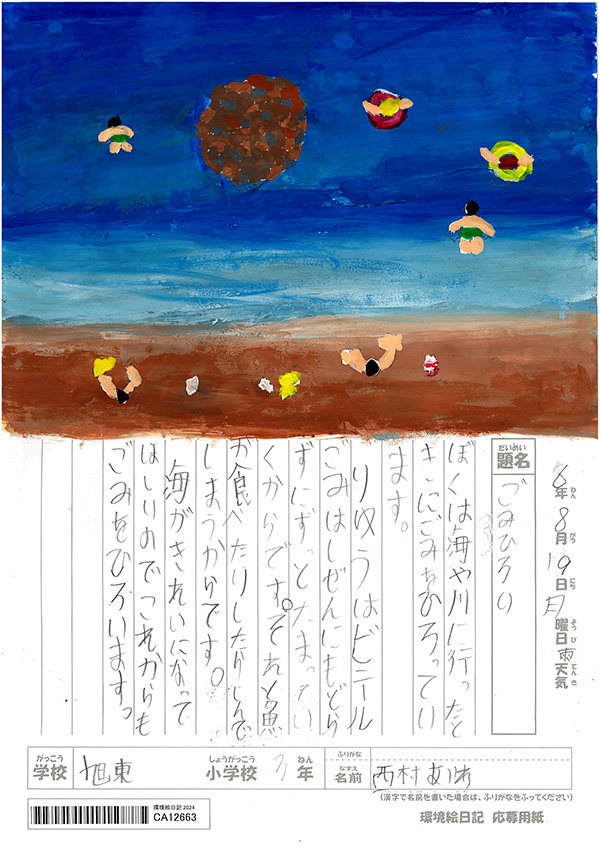 6年8月19日月曜日雨天気
ねん がつ にち ようび てんき
だいめい
題名
ごみひろい
ぼくは海や川に行ったと
きにごみをひろってい
ます。
りゆうはビニール
ごみはしぜんにもどら
ずにずっとたまってい
くからです。それと魚
が食べたりしたらしんで
しまうからです。
海がきれいになって
ほしいのでこれからも
ごみをひろいます。
がっこう しょうがっこう ねん
学校 旭東 小学校 3年
ふりがな
なまえ
名前 西村
(漢字で名前を書いた場合は、ふりがなをふってください)
環境絵日記 2024
CA12663
環境絵日記 応募用紙